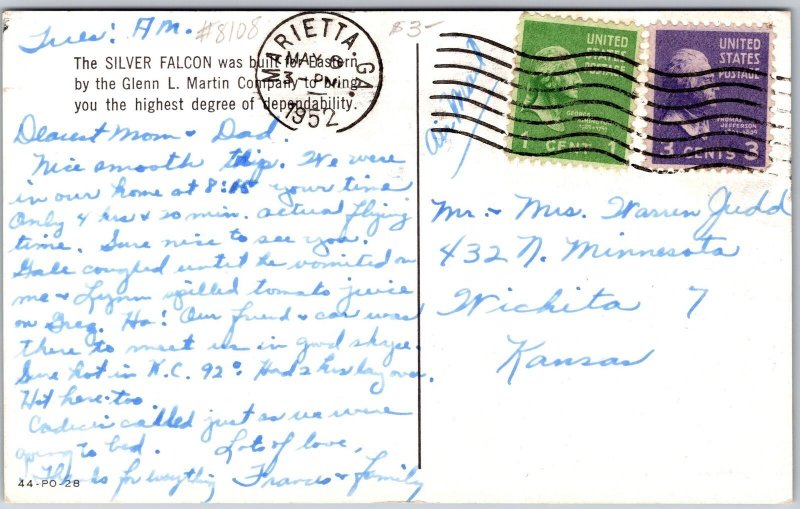 Tues: A.M.
#8108
The SILVER FALCON was built for Eastern
by the Glenn L. Martin Company to bring
you the highest degree of dependability.
Dearest Mom & Dad.
Nice smooth trip. We were
in our home at 8:15 your time
Only 4 hrs & 20 min. actual flying
time. Sure nice to see you.
Gale coughed until he vomited on
me & Lynn spilled tomato juice
on Greg. Ha! Our friend & car was
there to meet us in good shape.
Sure hot in K.C. 92°. Had 2 hrs lay over.
Hot here too.
called just as we were
going to bed. Lots of love,
Thanks for everything Frances & family
44-PO-28
MARIETTA, GA.
MAY 6
3 - PM
1952
$3-
Air Mail
UNITED
STATES
POSTAGE
GEORGE
WASHINGTON
1 CENT 1
UNITED
STATES
POSTAGE
THOMAS
JEFFERSON
3 CENTS 3
Mr. & Mrs. Warren Judd
432 N. Minnesota
Wichita 7
Kansas